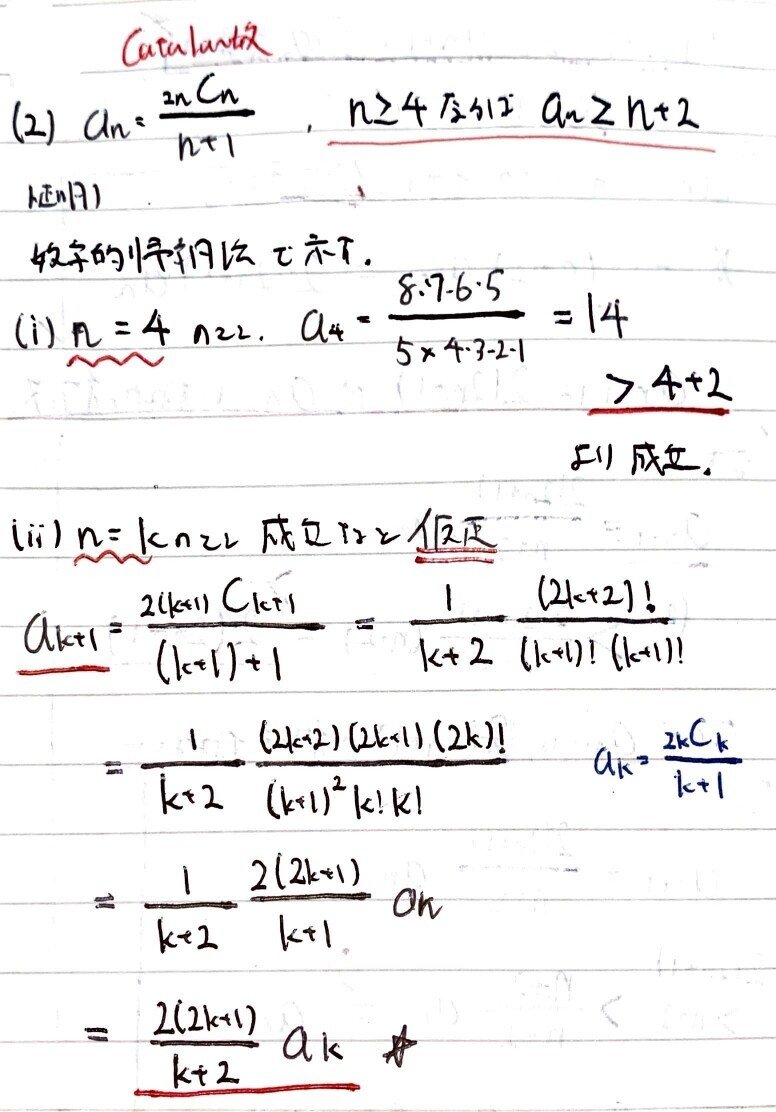 Catalan数
(2) an = 2nCn / n+1 , n≥4 ならば an ≥ n+2
証明)
数学的帰納法で示す.
(i) n = 4 のとき. a4 = 8·7·6·5 / 5×4·3·2·1 = 14
> 4+2
より成立.
(ii) n = k のとき 成立すると仮定
ak+1 = 2(k+1)Ck+1 / (k+1)+1 = 1 / k+2 (2k+2)! / (k+1)! (k+1)!
= 1 / k+2 (2k+2)(2k+1)(2k)! / (k+1)² k! k! ak = 2kCk / k+1
= 1 / k+2 2(2k+1) / k+1
= 2(2k+1) / k+2 ak